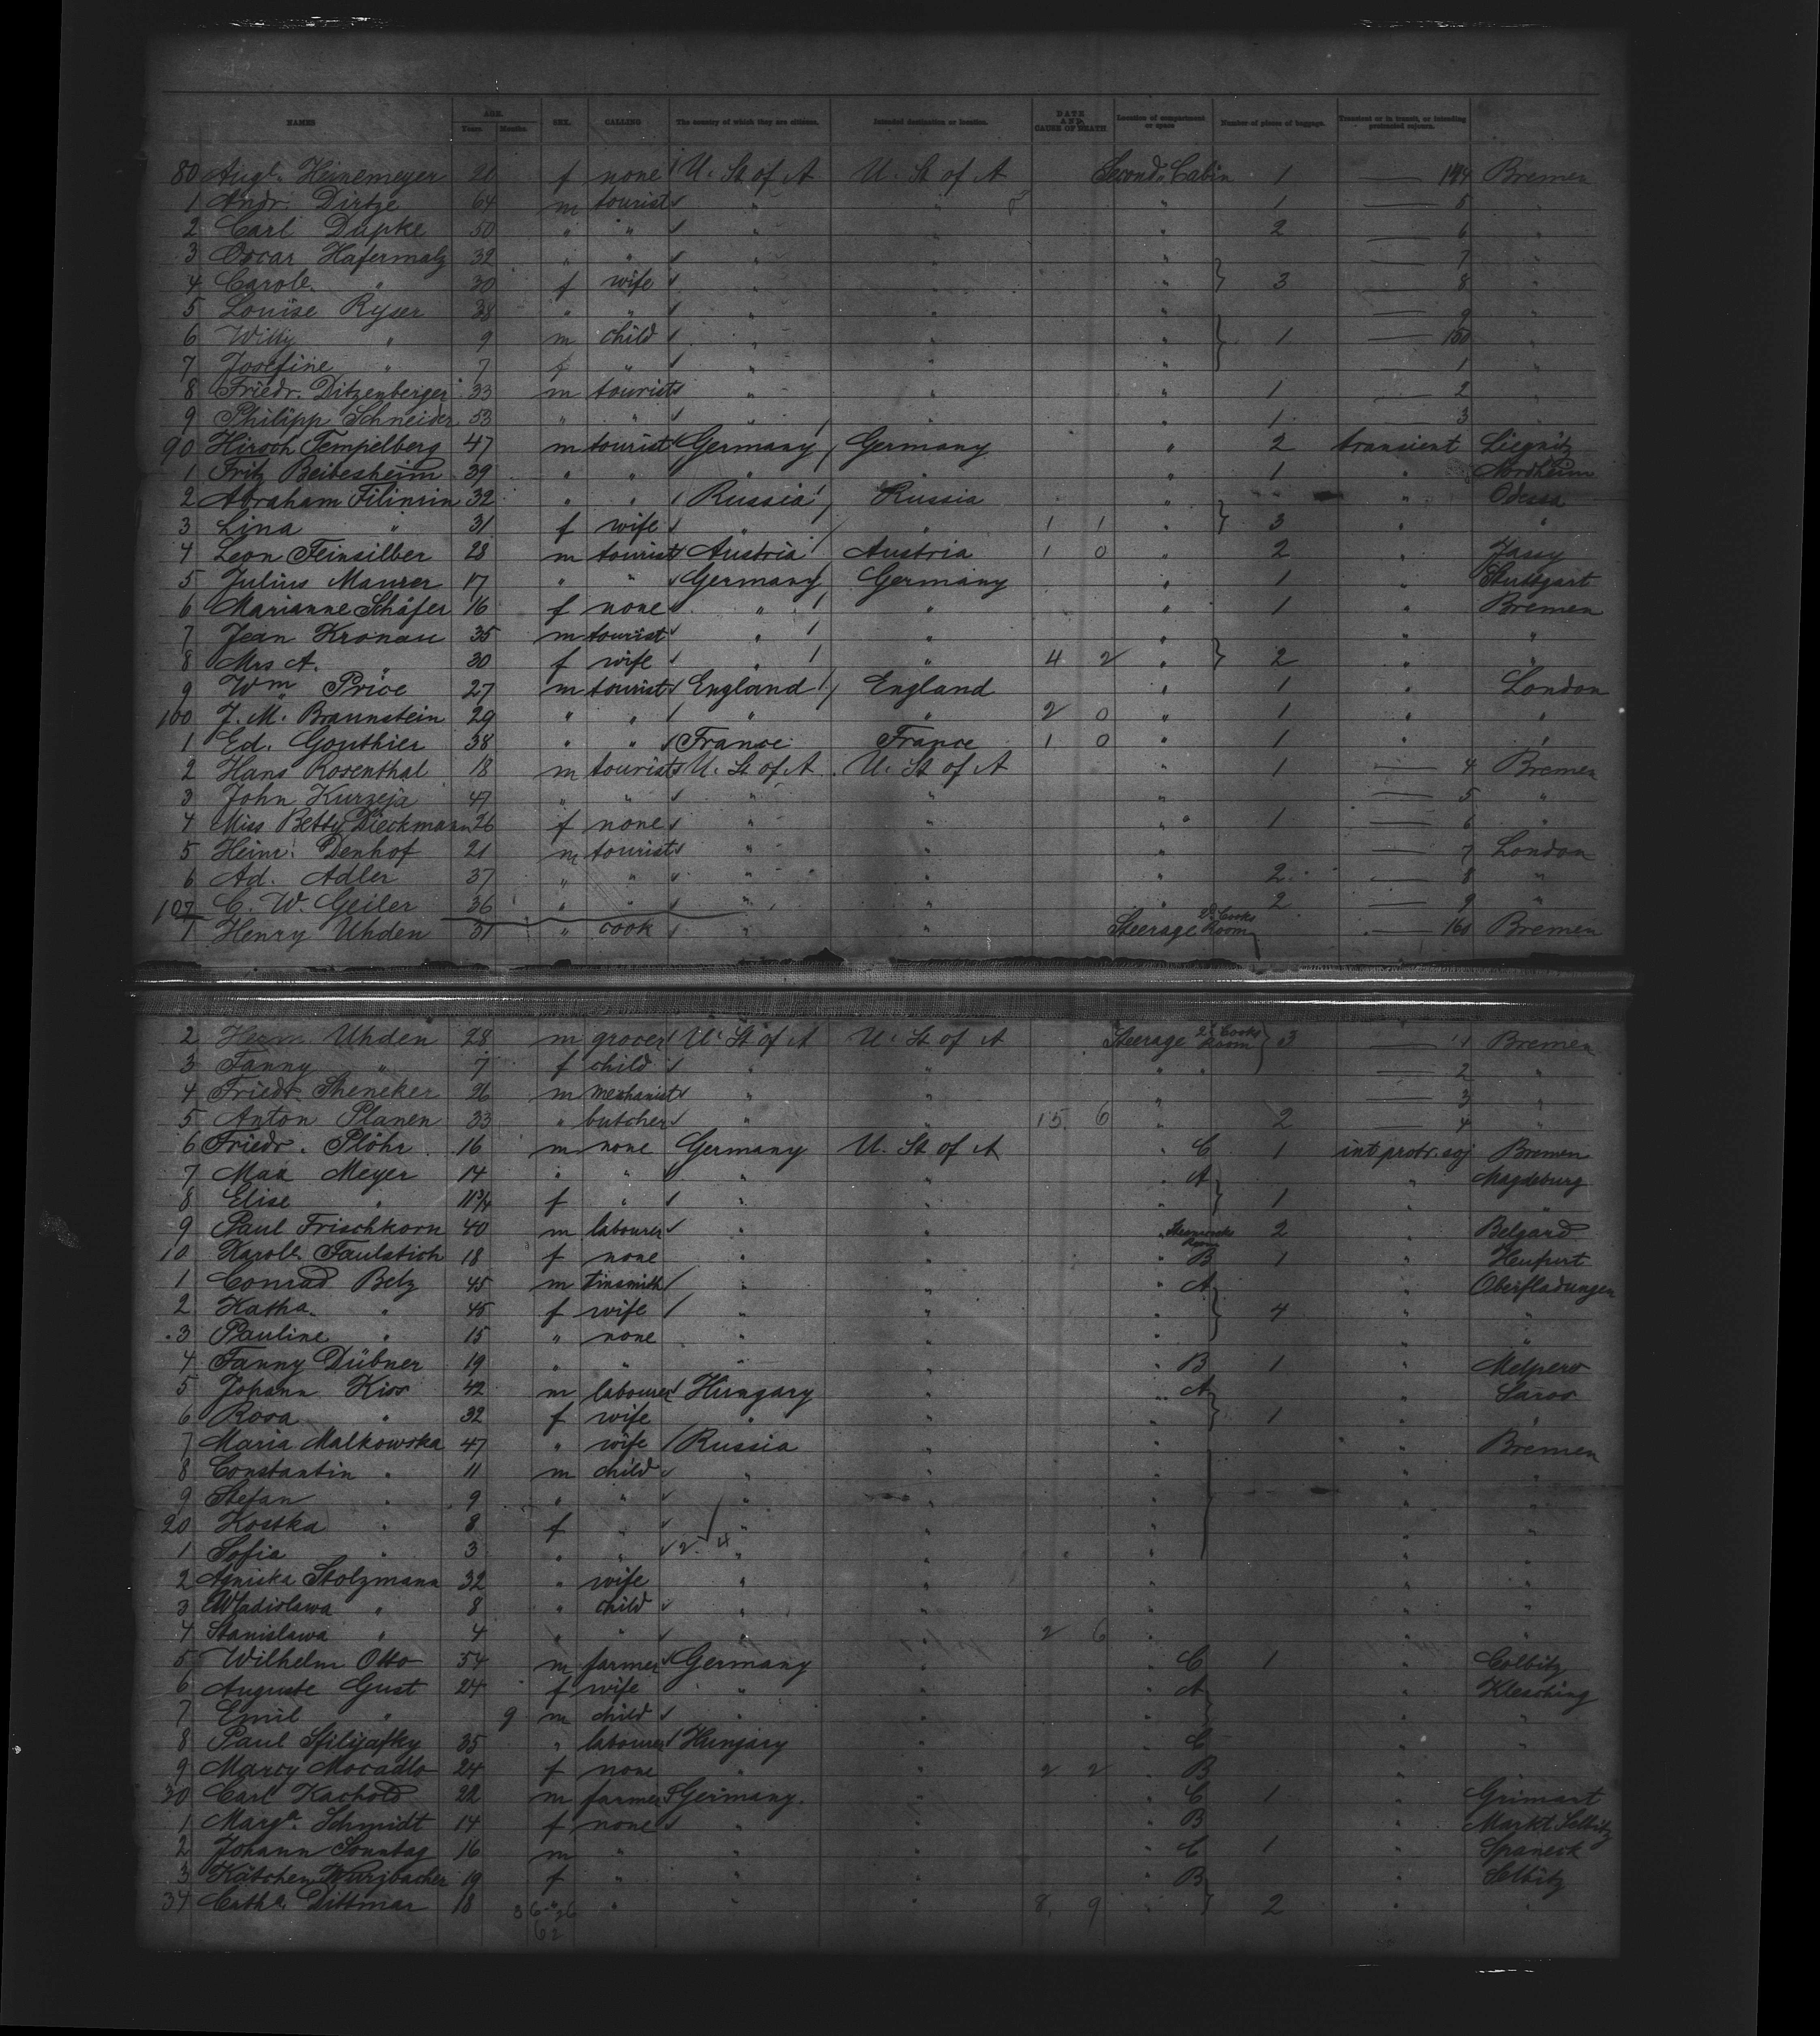 NAMES AGE. Years Months SEX. CALLING The country of which they are citizens. Intended destination or location. DATE AND CAUSE OF DEATH Location of compartment or space Number of pieces of baggage. Transient or in transit, or intending protracted sojourn.
80 Augte. Heinemeyer 21 f none U. St of A U. St of A Second Cabin 1 — Bremen
1 Andr. Dirtje 64 m tourist " " " 1 — 5 "
2 Carl Dupke 50 " " " " " 2 — 6 "
3 Oscar Hafermalz 32 " " " " " — 7 "
4 Carole. " 30 f wife " " " 3 — 8 "
5 Louise Ryser 38 " " " " " — 9 "
6 Willy " 9 m child " " " 1 — 150 "
7 Josefine " 7 f " " " " — 1 "
8 Friedr. Ditzenberger 33 m tourist " " " 1 — 2 "
9 Philipp Schneider 53 " " " " " 1 — 3 "
90 Hirsch Tempelberg 47 m tourist Germany Germany " 2 transient Liegnitz
1 Fritz Beibesheim 39 " " " " " 1 " Nordheim
2 Abraham Filinrin 32 " " Russia Russia " " Odessa
3 Lina " 31 f wife " " 1 1 " 3 " "
4 Leon Feinsilber 28 m tourist Austria Austria 1 0 " 2 " Jassy
5 Julius Maurer 17 " " Germany Germany " 1 " Stuttgart
6 Marianne Schäfer 16 f none " " " 1 " Bremen
7 Jean Kronau 35 m tourist " " " " "
8 Mrs A. " 30 f wife " " 4 2 " 2 " "
9 Wm Price 27 m tourist England England " 1 " London
100 J. M. Braunstein 29 " " " " 2 0 " 1 " "
1 Ed. Gonthier 38 " " France France 1 0 " 1 " "
2 Hans Rosenthal 18 m tourist U. St of A U. St of A " 1 — 4 Bremen
3 John Kurzeja 47 " " " " " — 5 "
4 Miss Betty Dieckmann 26 f none " " " 1 — 6 "
5 Heinr. Denhof 21 m tourist " " " — 7 London
6 Ad. Adler 37 " " " " " 2 — 8 "
107 C. W. Geiler 36 " " " " " 2 — 9 "
1 Henry Uhden 31 " cook " " Steerage 2d Cooks Room — 160 Bremen
2 Herm. Uhden 28 m grocer U. St of A U. St of A Steerage 2d Cooks Room 3 — 1 Bremen
3 Fanny " 7 f child " " " " — 2 "
4 Friedr. Theneker 26 m mechanist " " " — 3 "
5 Anton Planen 33 " butcher " " 15 6 " 2 — 4 "
6 Friedr. Plöhr 16 m none Germany U. St of A C 1 int protr. soj Bremen
7 Max Meyer 14 " " " " " A " Magdeburg
8 Elise " 11 3/4 f " " " " 1 " "
9 Paul Frischkorn 40 m labourer " " " 2 " Belgard
10 Karole. Faulstich 18 f none " " " B 1 " Heufurt
1 Conrad Belz 45 m tinsmith " " " A " Oberfladungen
2 Katha. " 45 f wife " " " 4 " "
3 Pauline " 15 " none " " " " "
4 Fanny Dübner 19 " " " " " B 1 " Melpers
5 Johann Kiss 42 m labourer Hungary " " A " Saros
6 Rosa " 32 f wife " " " 1 " "
7 Maria Malkowska 47 " wife Russia " " " Bremen
8 Constantin " 11 m child " " " " "
9 Stefan " 9 " " " " " " "
20 Kostka " 8 f " " " " " "
1 Sofia " 3 " " " " " " "
2 Stolzmann 32 " wife " " " " "
3 Wladislawa " 8 " child " " " " "
4 Stanislawa " 4 " " " " 2 6 " " "
5 Wilhelm Otto 54 m farmer Germany " C 1 " Colbitz
6 Auguste Gust 24 f wife " " " A " Klesching
7 Emil " 9 m child " " " " "
8 Paul 35 " labourer Hungary " " C " "
9 Marcy Mocadlo 24 f none " " 2 2 " B "
30 Carl Kachold 22 m farmer Germany. " " C 1 " Grimart
1 Marga. Schmidt 14 f none " " " B " Markt Selbitz
2 Johann Sonntag 16 m " " " " C 1 " Spaneck
3 Kätchen Wurzbacher 19 f " " " " B " Selbitz
34 Catha. Dittmar 18 " " " " 8 9 " 2 " "
62